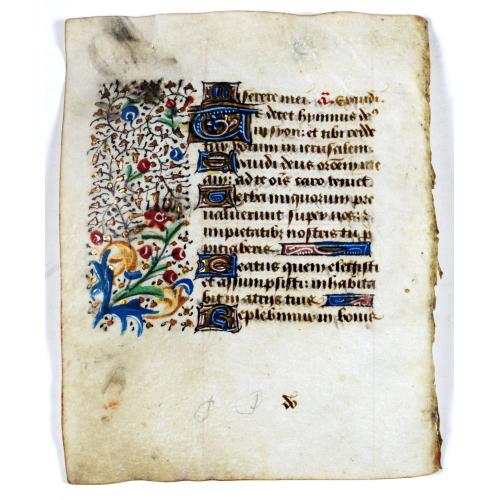 Miserere mei. a. Exaudi
Te decet hymnus de⁹
in syon: et tibi redde
tur votum in ierusalem
Exaudi deus orōem me
am: ad te oīs caro veniet
Verba iniquorum pre
valuerunt super nos: ⁊
impietatibꝫ nostris tu ꝓ
pitiaberis
Beatus quem elegisti
et assumpsisti: inhabita
bit in atrijs tuis
Replebimur in bonis